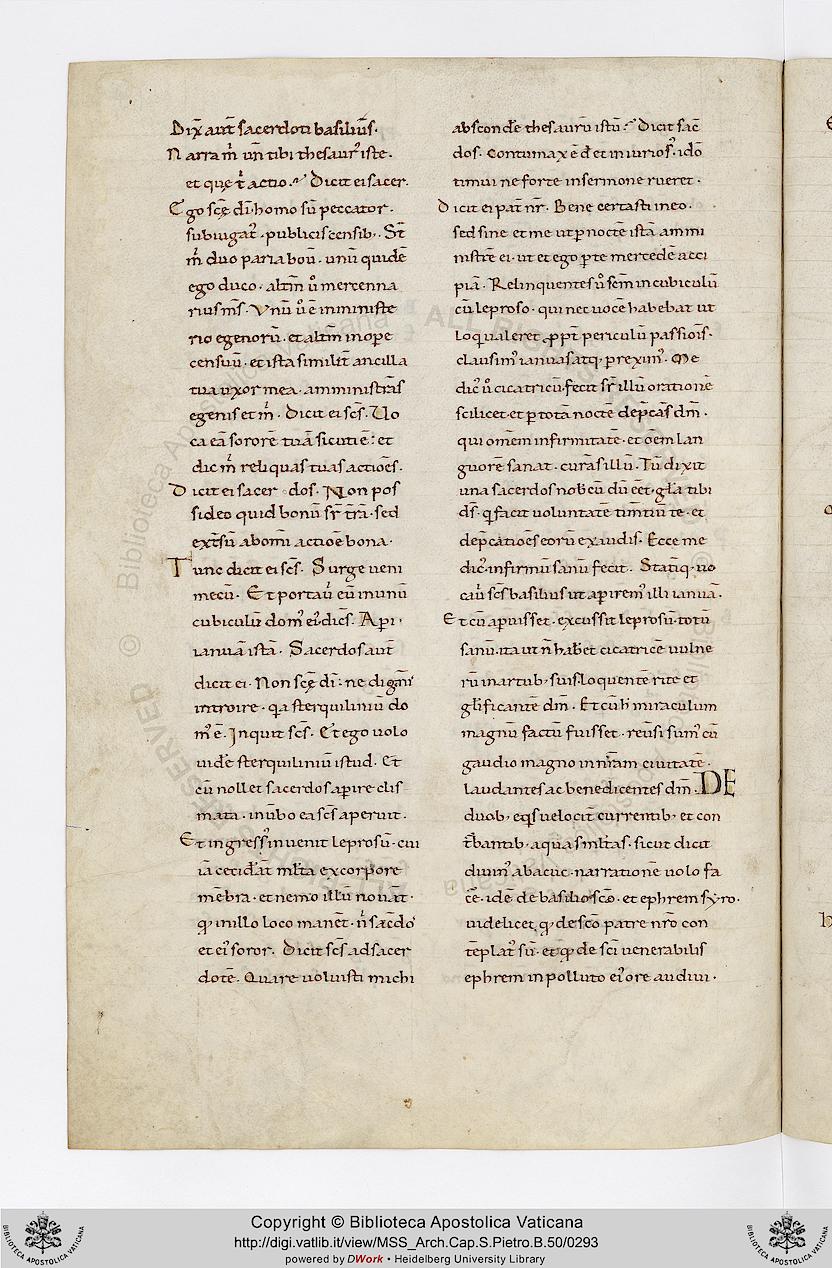 Dix̄ aūt sacerdoti basiliu᷒s.
Narra m̄ un̄ tibi thesaur᷒ iste.
et quę t̄ actio. Dicit ei sacer.
Ego scę̄ dī. homo sū peccator.
subiugat᷒. publicis censib᷒. St̄
m̄ duo paria boū. unū quidē
ego duco. alt̄m ū̊ mercenna
rius m̄s. Vnū ū̊ ē in ministe
rio egenorū. et alt̄m in ope
censuū. et ista similit̄ ancilla
tua uxor mea. amministrās
egenis et m̄. Dicit ei sc̄s. Uo
ca eā sororē tuā sicuti ē. et
dic m̄ reliquas tuas actiōes.
Dicit ei sacer dos. Non pos
sideo quid bonū sr̄ t̄rā. sed
ext̄sū abomī actiōe bona.
Tunc dicit ei sc̄s. Surge ueni
mecū. Et portaū eū in unū
cubiculū dom᷒ ei᷒. dic̄s. Aperi.
ianuā istā. Sacerdos aūt
dicit ei. Non scę̄ dī. ne digni᷒
introire. qa sterquiliniū do
m᷒ ē. Inquit sc̄s. Et ego uolo
uidē sterquiliniū istud. Et
cū nollet sacerdos apire clis
mata. in ūbo ea sc̄s aperuit.
Et ingress᷒ inuenit leprosū. cui
iā cecidāt ml̄ta ex corpore
mēbra. et nemo illū nouāt.
qđ in illo loco manēt. n̄ sacēdo᷒
et ei᷒ soror. Dicit sc̄s ad sacer
dotē. Quare uoluisti michi
abscondē thesaurū istū? Dicit sac̄
dos. Contumax ē d̄ et iniurios᷒. idō
timui ne forte in sermone rueret.
Dicit ei pat̄ nr̄. Bene certasti in eo.
sed sine et me ut p noctē istā ammi
nistrē ei. ut et ego p te mercedē acci
piā. Relinquentes ū̊ sēm in cubiculū
cū leproso. qui nec uocē habebat ut
loqua leret ppt̄ periculū passiōis.
clausim᷒ ianuas atq. prexim᷒. Me
dic᷒ ū̊ cicatricū. fecit sr̄ illū orationē
scilicet. et p totā noctē dep̄cās dm̄.
qui omēm infirmitatē. et oēm lan
guorē sanat. curās illū. Tū dixit
una sacerdos nob᷒cū dū eēt. gl̄a tibi
dš. q facit uoluntatē timtiū te. et
dep̄catioēs eorū exaudis. Ecce me
dic᷒ infirmū sanū fecit. Statiq. uo
caū sc̄s basilius ut apirem᷒ illi ianuā.
Et cū apuisset. excussit leprosū totū
sanū. ita ut n̄ hab̄et cicatricē uulne
rū in artub᷒ suis. loquentē rite et
gl̄ificantē dm̄. Et cū h̄ miraculum
magnū factū fuisset. reūsi sum᷒ cū
gaudio magno in nr̄am ciuitatē.
laudantes ac benedicentes dm̄. DE
duob᷒ eqs uelocit̄ currentib᷒ et con
t̄bantib᷒ aquas ml̄tas. sicut dicit
diuin᷒ abacuc. narrationē uolo fa
cē. idē de basilio scō. et ephrem syro.
uidelicet qđ de scō patre nrō con
tēplat᷒ sū. et qđ de scī uenerabilis
ephrem in polluto ei᷒ ore audiui.
ALL RIGHTS RESERVED © Biblioteca Apostolica Vaticana
Copyright © Biblioteca Apostolica Vaticana
http://digi.vatlib.it/view/MSS_Arch.Cap.S.Pietro.B.50/0293
powered by DWork • Heidelberg University Library
BIBLIOTECA APOSTOLICA VATICANA
BIBLIOTECA APOSTOLICA VATICANA